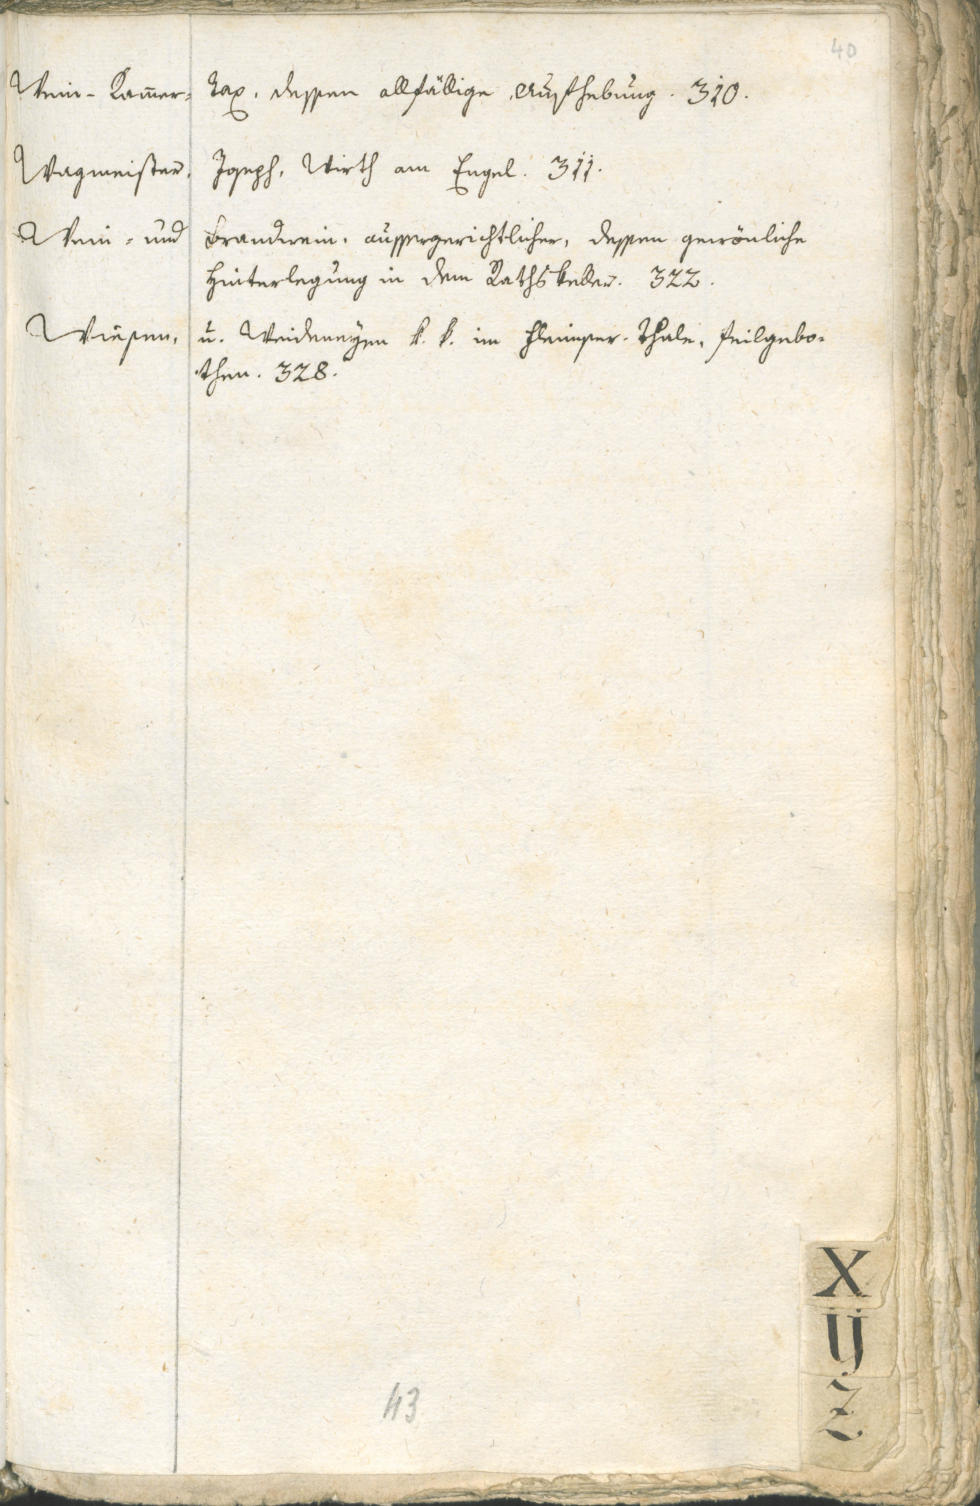 40
Wein-Kam̄er- Tax, dessen allfällige Aufhebung. 310.
Wagmeister, Joseph, Wirth am Engel. 311.
Wein- und Brandwein, aussergerichtlicher, dessen
Hinterlegung in dem Rathskeller. 322.
Wiesen, u. Weidereyen k. k. im Thale, feilgebo-
then. 328.
X
Y
Z
43